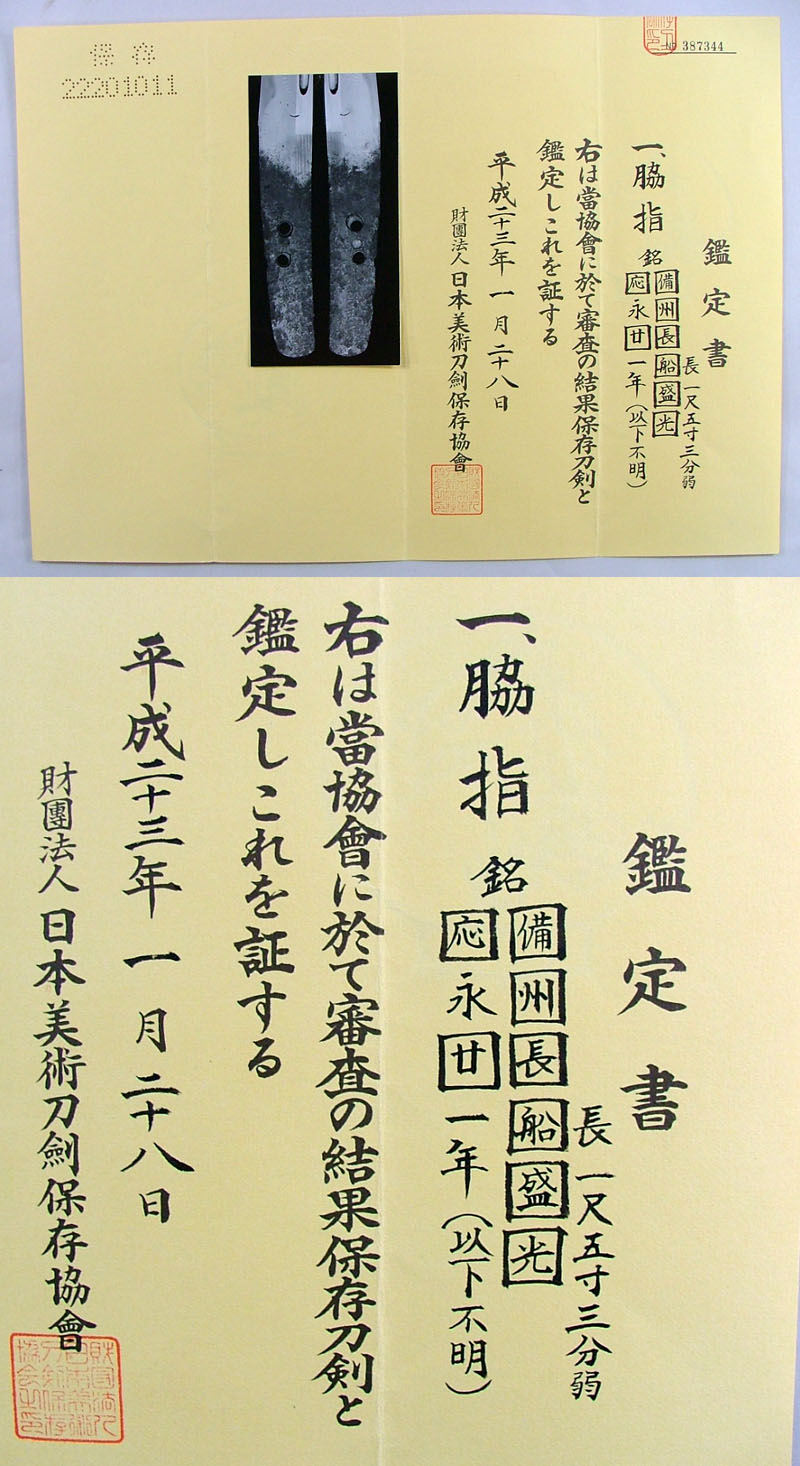 保存
22201011
No 387344
鑑定書
一、脇指
長一尺五寸三分弱
銘
備州長船盛光
応永廿一年（以下不明）
右は當協會に於て審査の結果保存刀剣と
鑑定しこれを証する
平成二十三年一月二十八日
財團法人日本美術刀劍保存協會
鑑定書
一、脇指
長一尺五寸三分弱
銘
備州長船盛光
応永廿一年（以下不明）
右は當協會に於て審査の結果保存刀剣と
鑑定しこれを証する
平成二十三年一月二十八日
財團法人日本美術刀劍保存協會